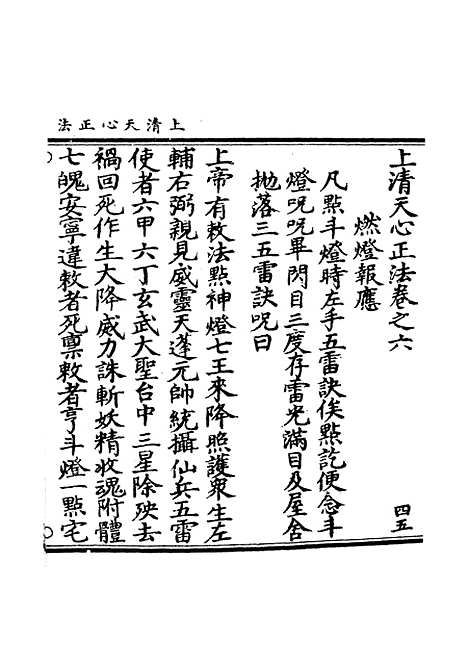 上清天心正法
上清天心正法卷之六
四五
燃燈報應
凡點斗燈時左手五雷訣俟點訖便念斗
燈呪呪畢閃目三度存雷光滿目及屋舍
拋落三五雷訣呪曰
上帝有敕法點神燈七王來降照護衆生左
輔右弼親見威靈天蓬元帥統攝仙兵五雷
使者六甲六丁玄武大聖台中三星除殃去
禍回死作生大降威力誅斬妖精收魂附體
七魄安寧違敕者死禀敕者亨斗燈一點宅